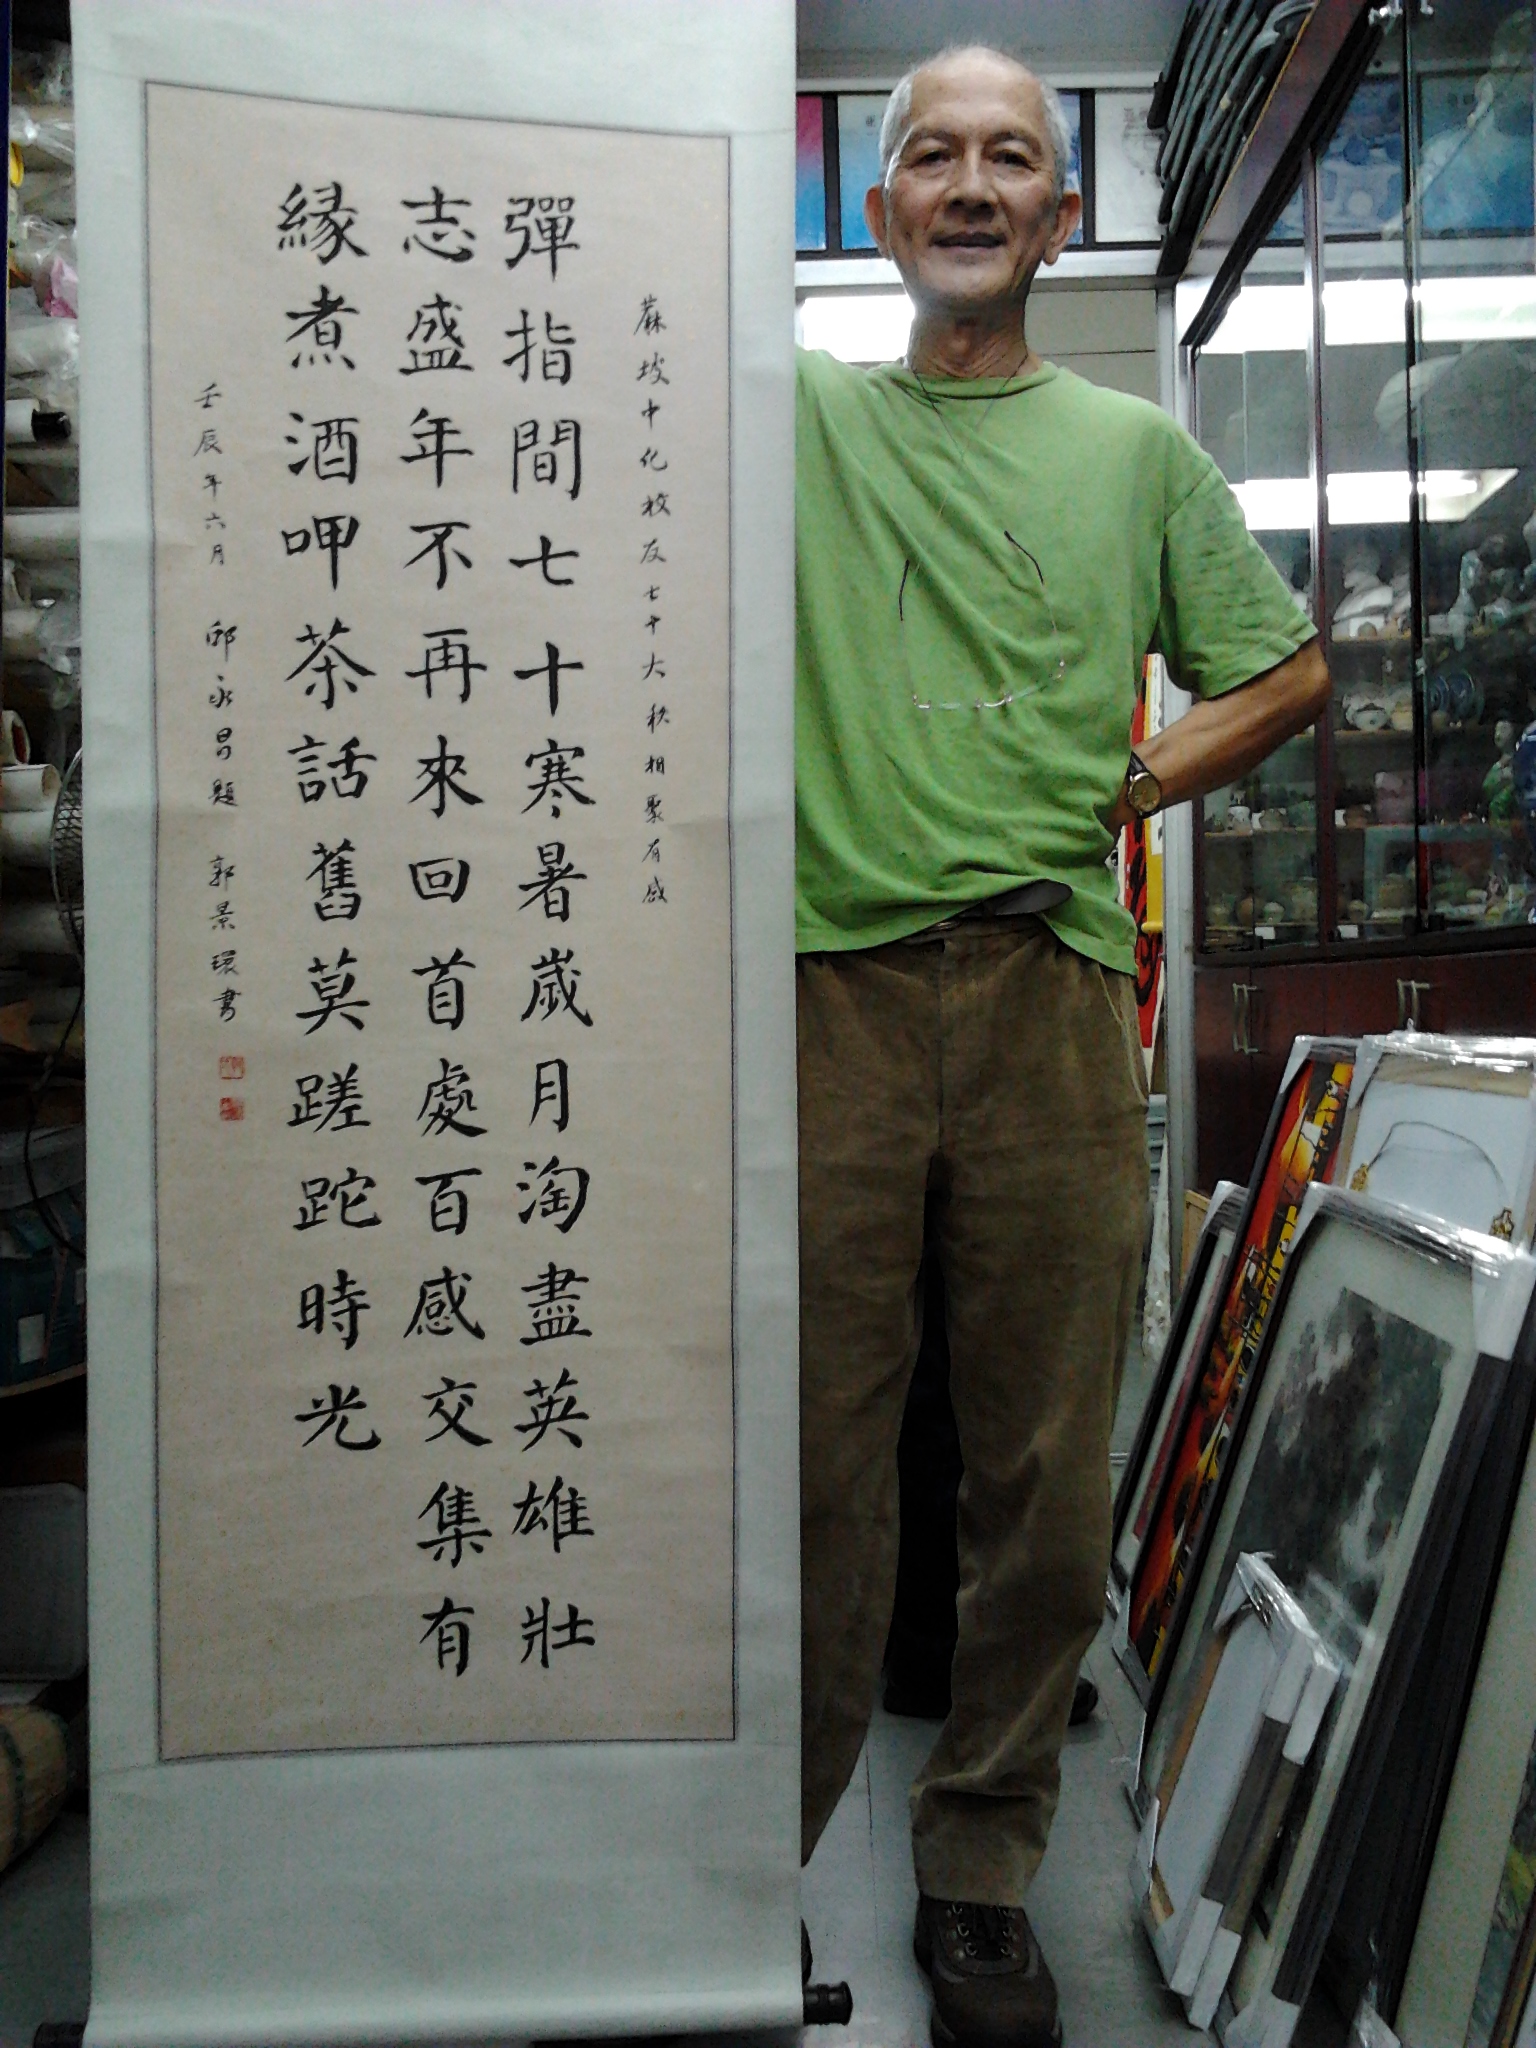 蔴坡中化校友七十大秩相聚有感
彈指間七十寒暑歲月淘盡英雄壯
志盛年不再來回首處百感交集有
緣煮酒呷茶話舊莫蹉跎時光
壬辰年六月 邱永昌題 郭景環書